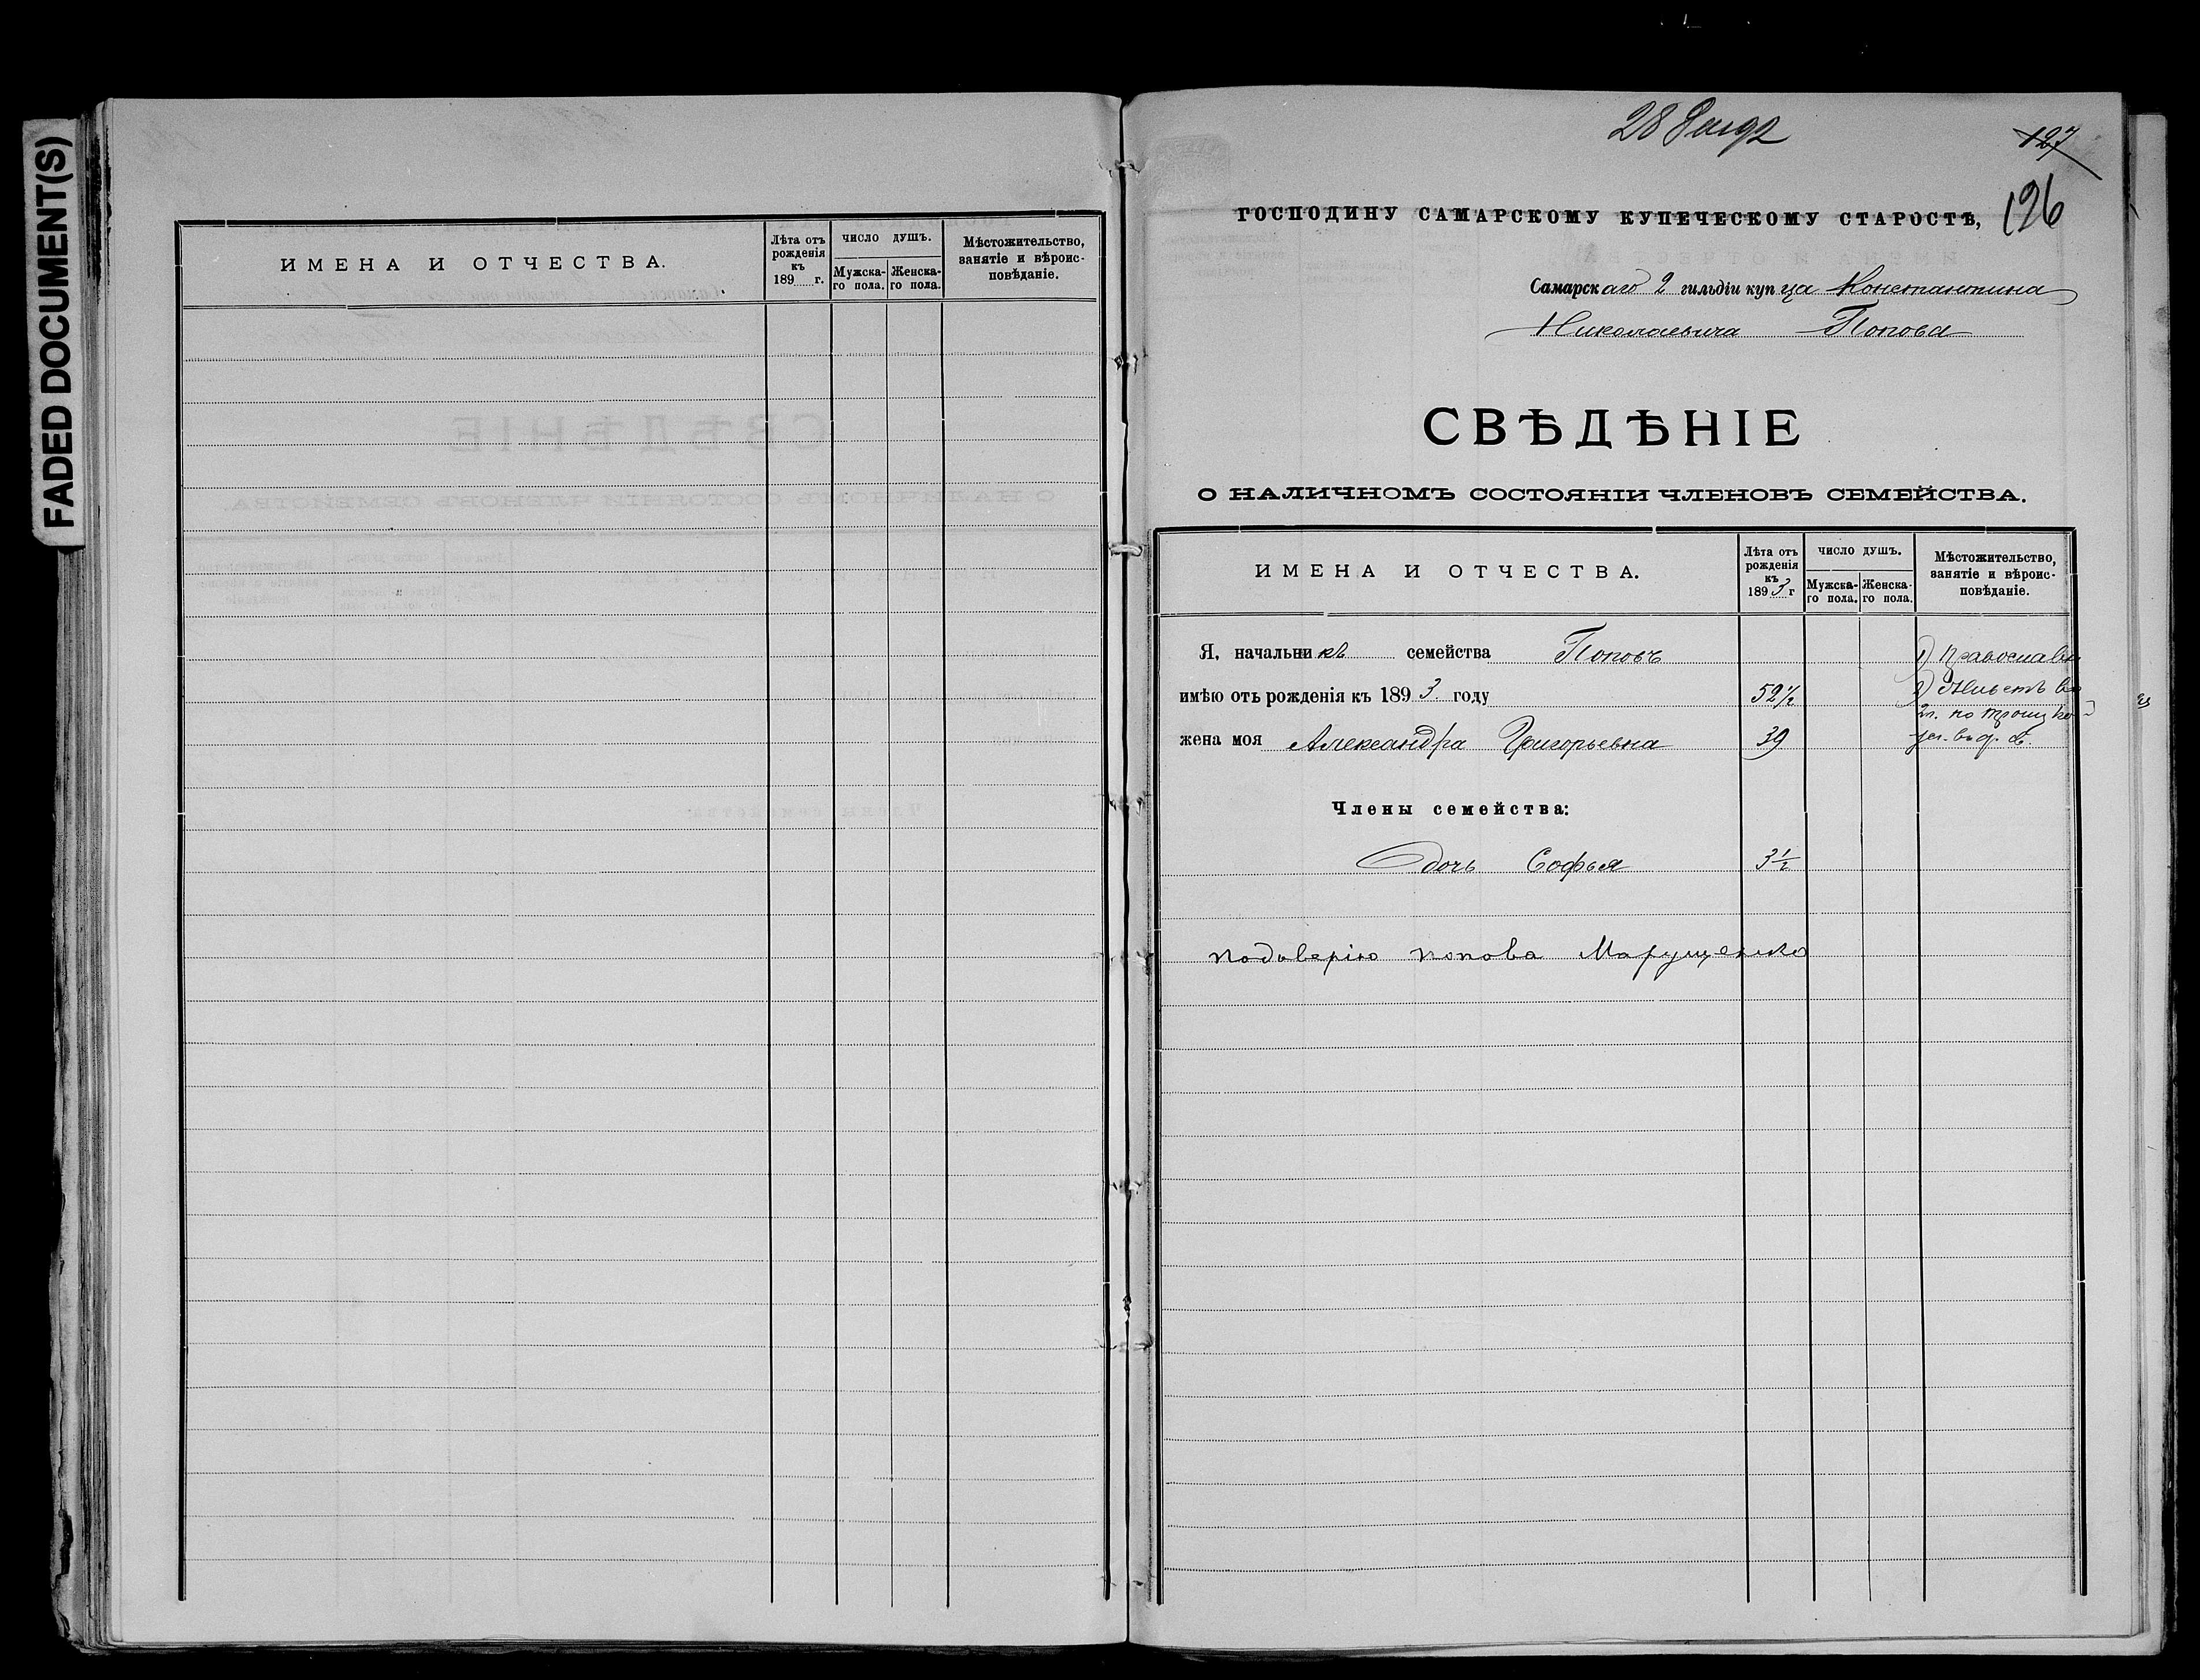 FADED DOCUMENT(S)
ИМЕНА И ОТЧЕСТВА.
Лѣта отъ рожденія къ 189 г.
ЧИСЛО ДУШЪ.
Мужска-го пола.
Женска-го пола.
Мѣстожительство, занятіе и вѣроис-повѣданіе.
28
127
126
ГОСПОДИНУ САМАРСКОМУ КУПЕЧЕСКОМУ СТАРОСТѢ,
Самарскаго 2 гильдіи купца Константина
Николаевича Попова
СВѢДѢНІЕ
О НАЛИЧНОМЪ СОСТОЯНІИ ЧЛЕНОВЪ СЕМЕЙСТВА.
ИМЕНА И ОТЧЕСТВА.
Лѣта отъ рожденія къ 1893 г
ЧИСЛО ДУШЪ.
Мужска-го пола.
Женска-го пола.
Мѣстожительство, занятіе и вѣроис-повѣданіе.
Я, начальникъ семейства Поповъ
1) Православн
имѣю отъ рожденія къ 1893 году 52 1/2
2)
2ч. по Троицкой
жена моя Александра Григорьевна 39
ул. въ д.
Члены семейства:
дочь Софья 3 1/2
подоверію попова Марущенко